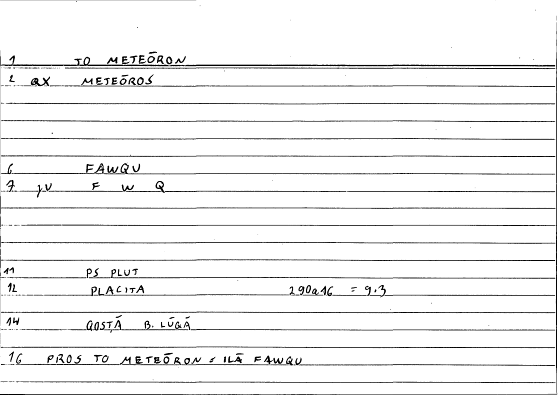 1 TO METEŌRON
2 QX METEŌROS
6 FAWQU
7 jv F W Q
11 PS PLUT
12 PLACITA 290a16 = 9.3
14 QOSṬĀ B. LŪQĀ
16 PROS TO METEŌRON = ILĀ FAWQU